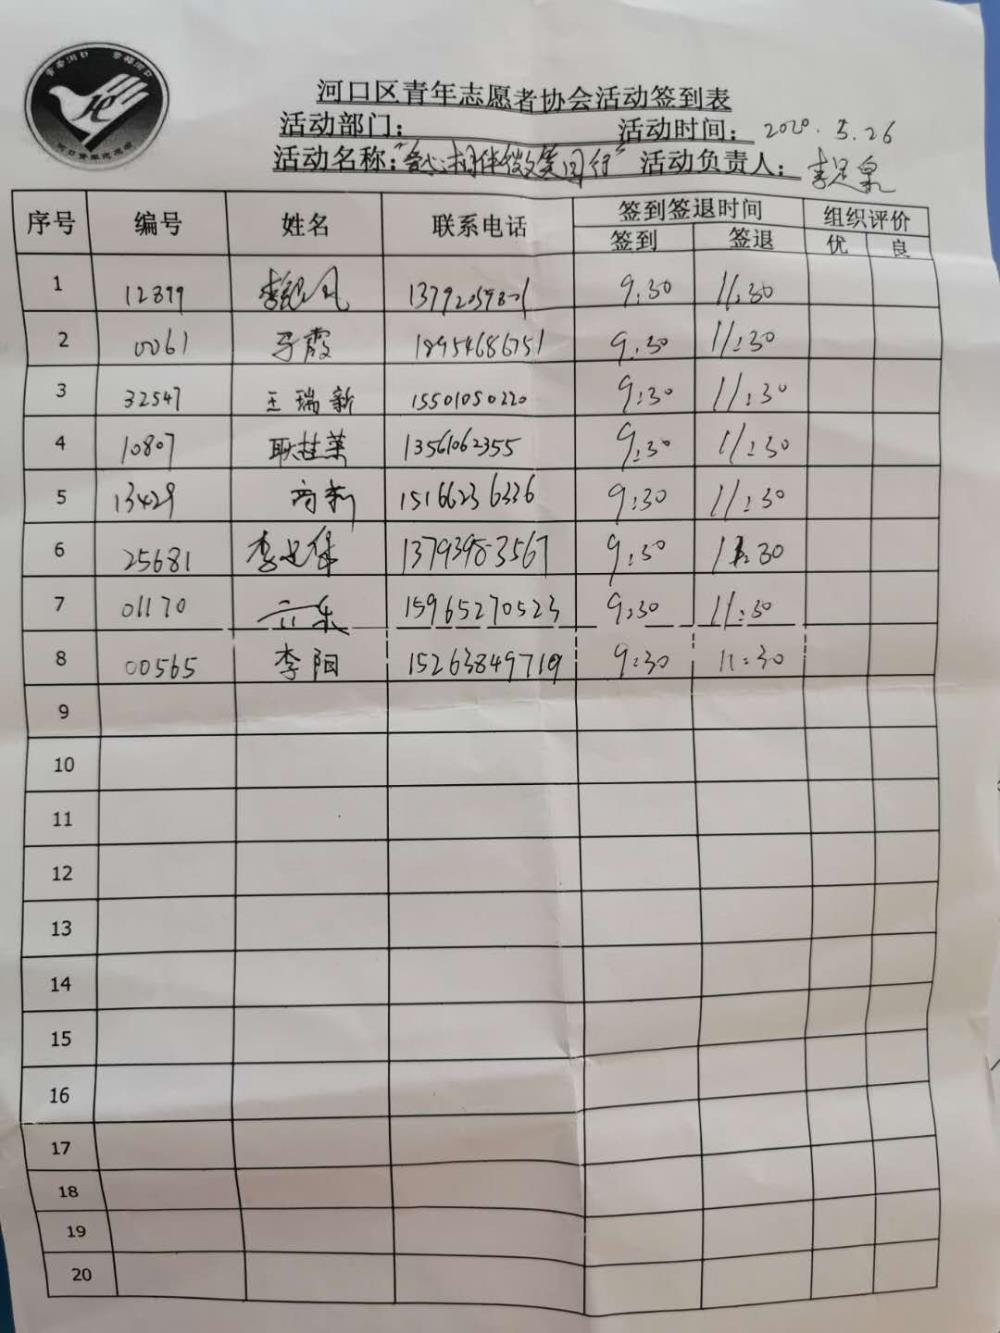 河口区青年志愿者协会活动签到表
活动部门： 活动时间：2020.5.26
活动名称：“爱心相伴微笑同行” 活动负责人：李
序号 编号 姓名 联系电话 签到签退时间 组织评价
签到 签退 优 良
1 12899 9:30 11:30
2 0061 于霞 18954686751 9:30 11:30
3 32547 王瑞新 15501050220 9:30 11:30
4 10807 耿桂英 13561062355 9:30 11:30
5 13429 15166236336 9:30 11:30
6 25681 李 13793983567 9:30 11:30
7 01170 15965270523 9:30 11:30
8 00565 李阳 15263849719 9:30 11:30
9
10
11
12
13
14
15
16
17
18
19
20